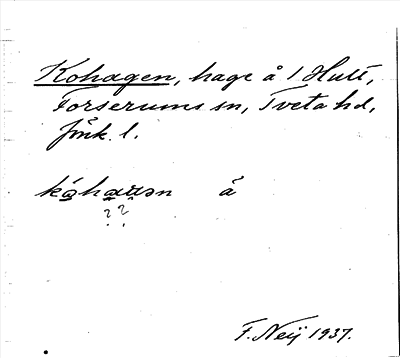 Kohagen, hage å 1 Hult,
Forserums sn, Tveta hd,
Jönk. l.
å
? ?
F. Neij 1937.